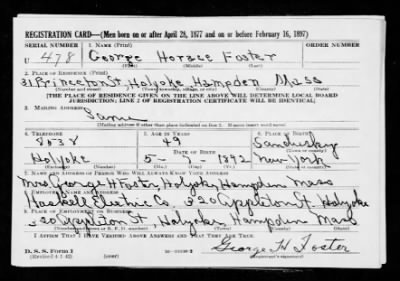 REGISTRATION CARD—(Men born on or after April 28, 1877 and on or before February 16, 1897)
SERIAL NUMBER 1. NAME (Print)
U 478 George Horace Foster
(First) (Middle) (Last)
2. PLACE OF RESIDENCE (Print)
31 Princeton St. Holyoke Hampden Mass
(Number and street) (Town, township, village, or city) (County) (State)
[THE PLACE OF RESIDENCE GIVEN ON THE LINE ABOVE WILL DETERMINE LOCAL BOARD
JURISDICTION; LINE 2 OF REGISTRATION CERTIFICATE WILL BE IDENTICAL]
3. MAILING ADDRESS
Same
(Mailing address if other than place indicated on line 2. If same insert word same)
4. TELEPHONE 5. AGE IN YEARS 6. PLACE OF BIRTH
8038 49 Sandusky
DATE OF BIRTH (Town or county)
Holyoke 5- 7- 1892 New-York
(Exchange) (Number) (Mo.) (Day) (Yr.) (State or country)
7. NAME AND ADDRESS OF PERSON WHO WILL ALWAYS KNOW YOUR ADDRESS
Mrs George H Foster, Holyoke, Hampden Mass
8. EMPLOYER'S NAME AND ADDRESS
Haskell Electric Co. 320 Appleton St, Holyoke
9. PLACE OF EMPLOYMENT OR BUSINESS
320 Appleton St, Holyoke, Hampden Mass
(Number and street or R. F. D. number) (Town) (County) (State)
I AFFIRM THAT I HAVE VERIFIED ABOVE ANSWERS AND THAT THEY ARE TRUE.
D. S. S. Form 1
(Revised 4-1-42) (over) George H. Foster
(Registrant's signature)